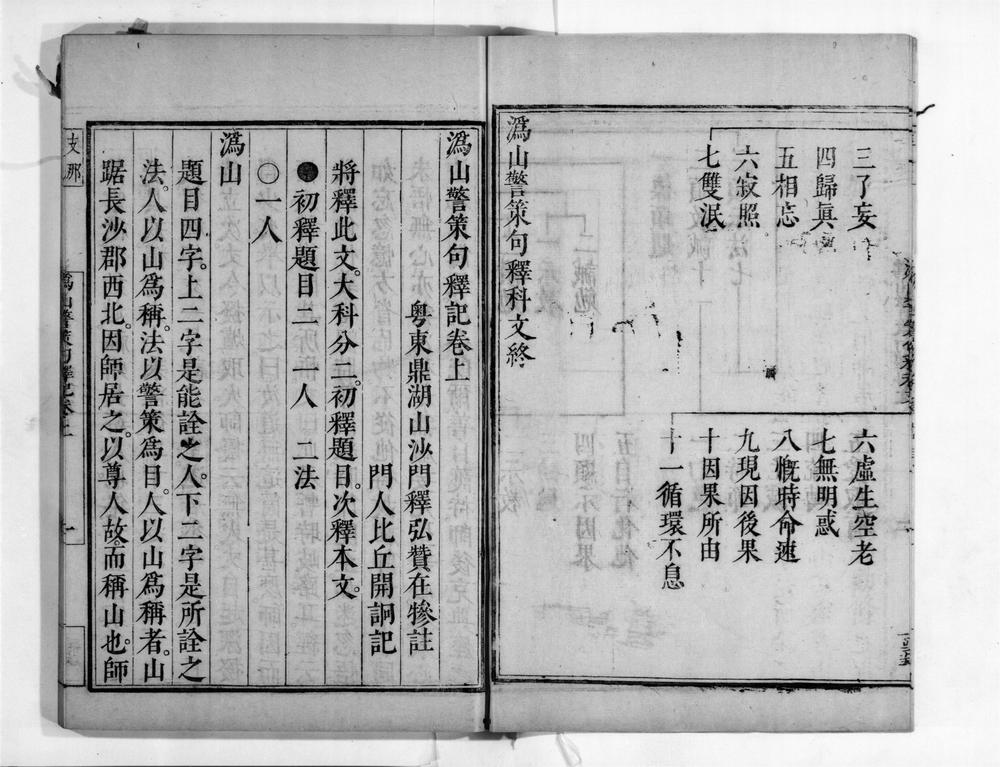 三了妄
四歸眞
五相忘
六寂照
七雙泯
六虛生空老
七無明惑
八慨時命速
九現因後果
十因果所由
十一循環不息
溈山警策句釋科文終
溈山警策句釋記卷上
粵東鼎湖山沙門釋弘贊在犙註
門人比丘開詗記
將釋此文。大科分二。初釋題目。次釋本文。
初釋題目二 一人 二法
○一人
溈山
題目四字。上二字是能詮之人。下二字是所詮之
法。人以山爲稱。法以警策爲目。人以山爲稱者。山
踞長沙郡西北。因師居之。以尊人故。而稱山也。師
支那
溈山警策句釋記卷上
一